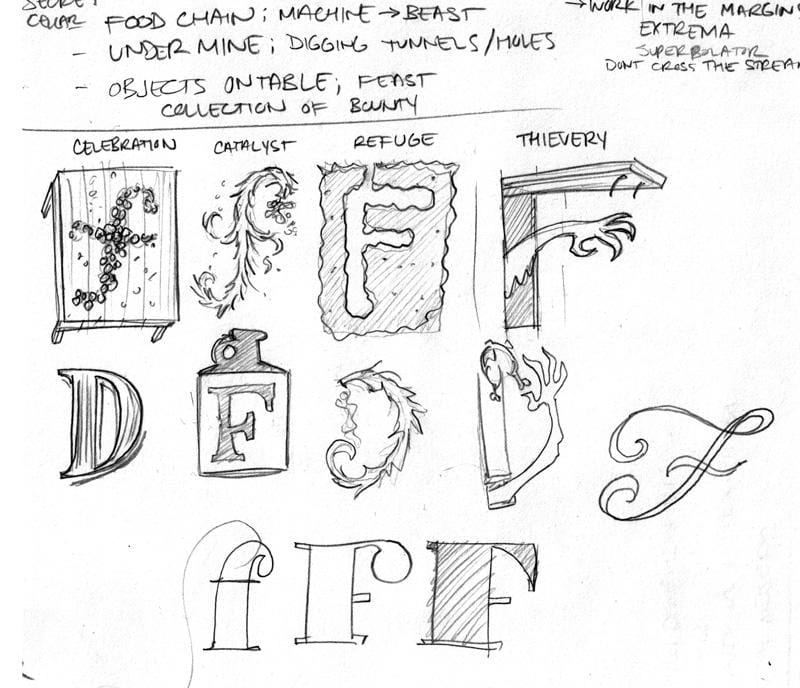 SECRET
CELLAR FOOD CHAIN; MACHINE → BEAST
- UNDERMINE; DIGGING TUNNELS/HOLES
- OBJECTS ON TABLE; FEAST
COLLECTION OF BOUNTY
→ WORK IN THE MARGINS
EXTREMA
SUPERBOLATOR
DONT CROSS THE STREAM
CELEBRATION CATALYST REFUGE THIEVERY
f f F F
D F D D F
f F F